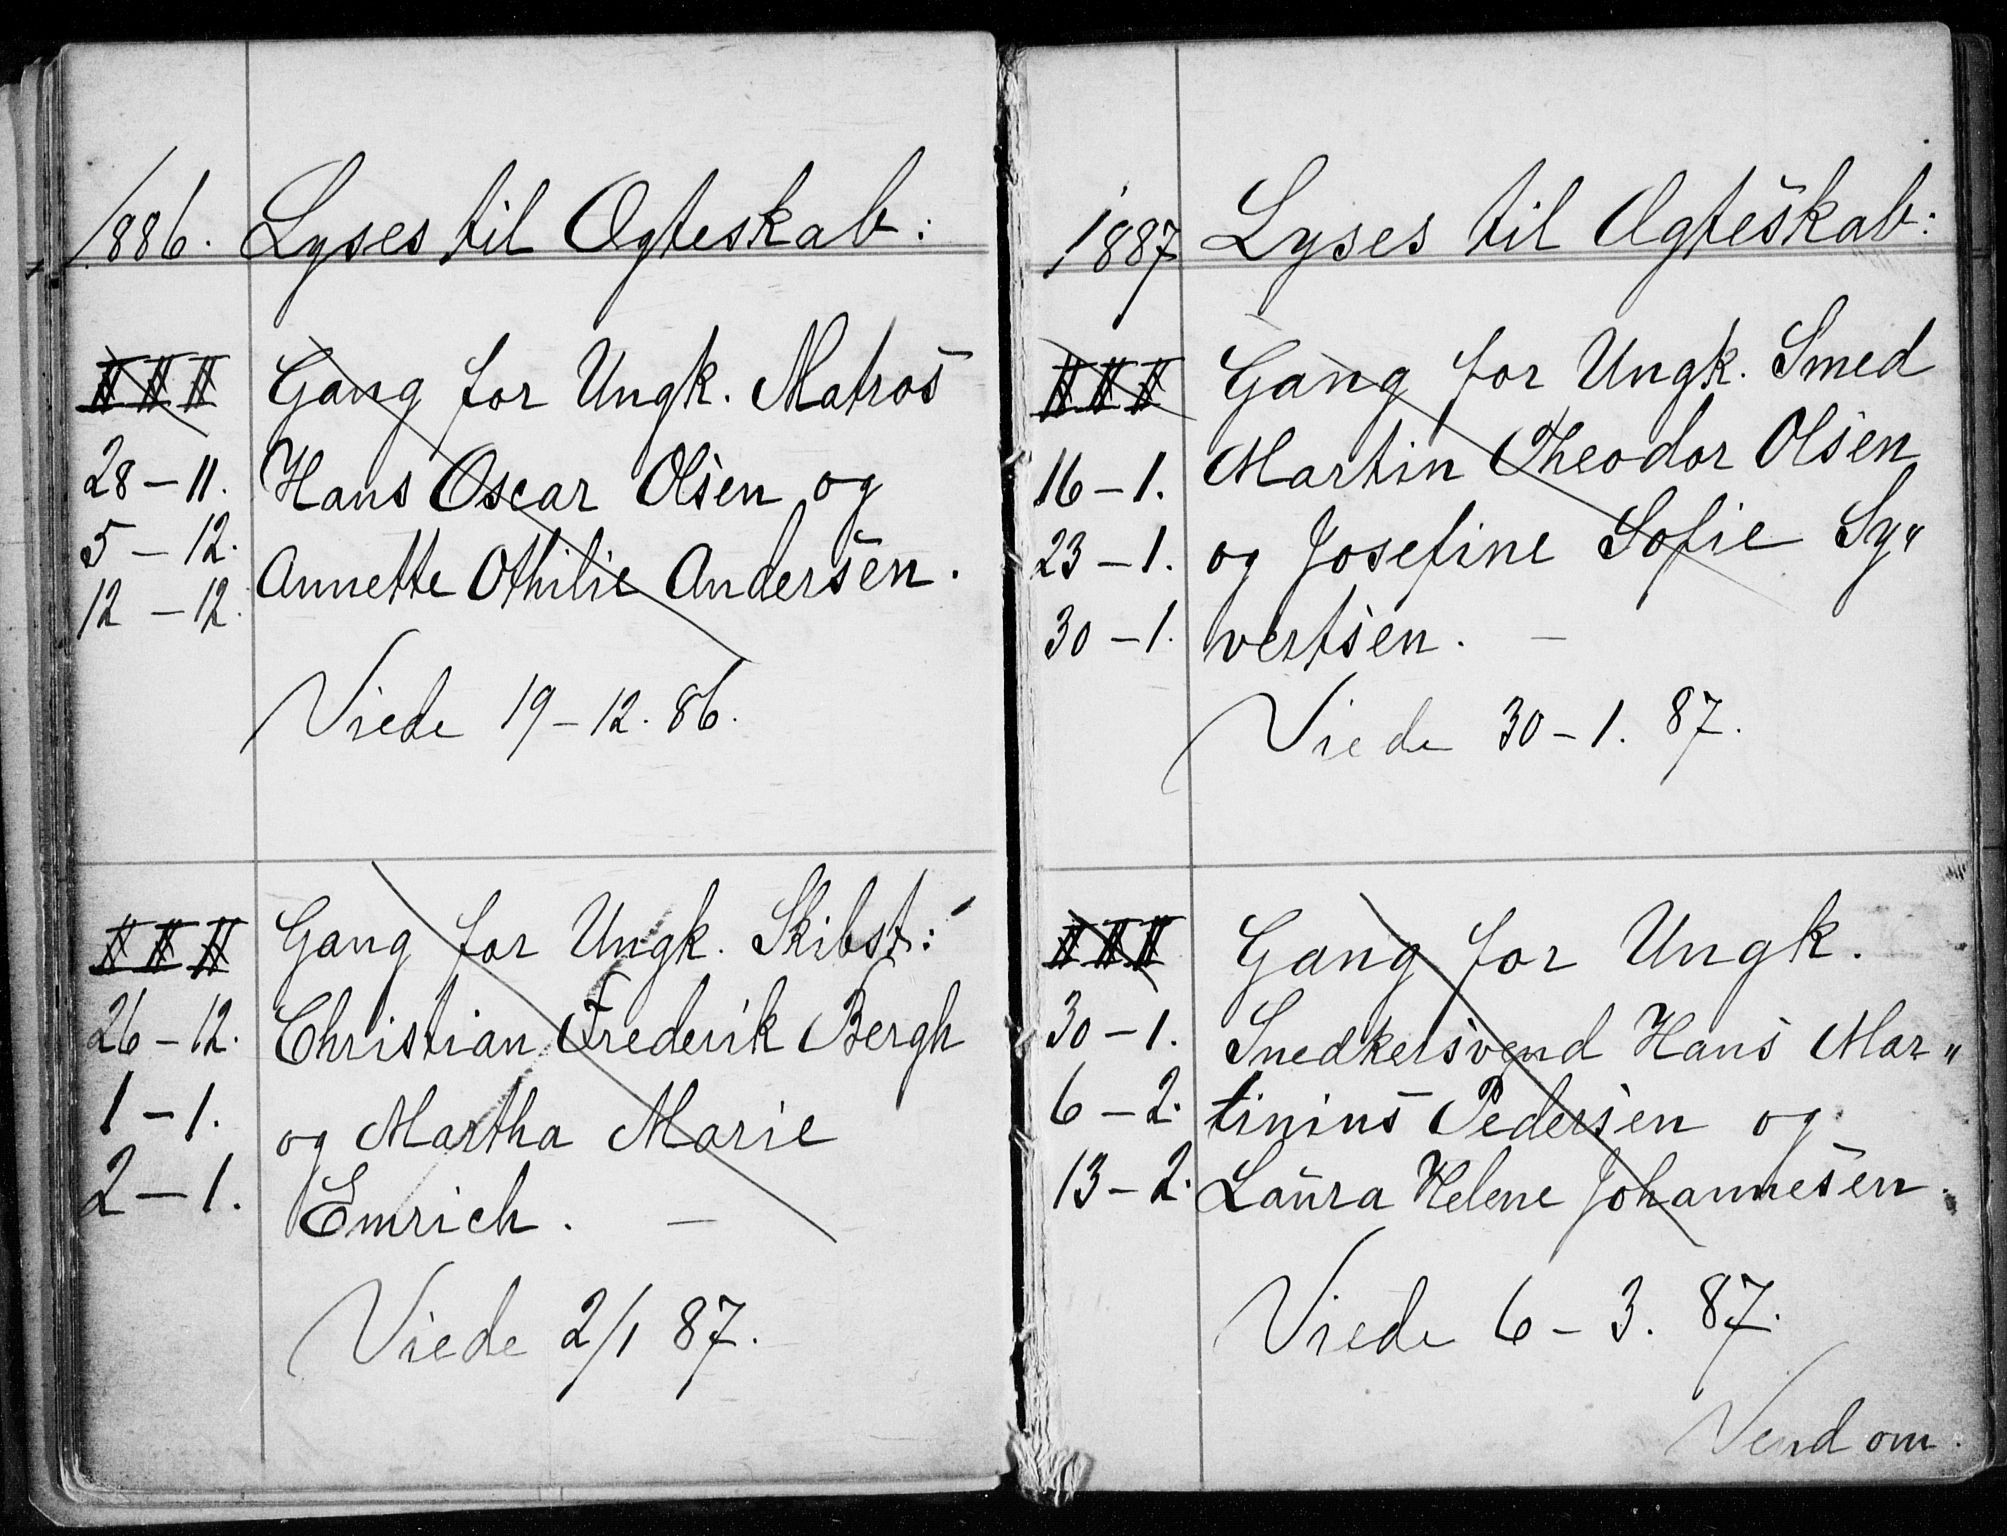 1886. Lyses til Ægteskab:
I II III Gang for Ungk. Matros
28 – 11. Hans Oscar Olsen og
5 – 12. Annette Othilie Andersen.
12 – 12.
Viede 19 – 12. 86.
I II III Gang for Ungk. Skibst:
26 – 12. Christian Frederik Bergh
1 – 1. og Martha Marie
2 – 1. Emrich. –
Viede 2/1 87.
1887 Lyses til Ægteskab:
I II III Gang for Ungk. Smed
16 – 1. Martin Theodor Olsen
23 – 1. og Josefine Sofie Sy„
30 – 1. vertsen. –
Viede 30 – 1. 87.
I II III Gang for Ungk.
30 – 1. Snedkersvend Hans Mar„
6 – 2. tinius Pedersen og
13 – 2. Laura Helene Johannesen.
Viede 6 – 3. 87.
Vend om.